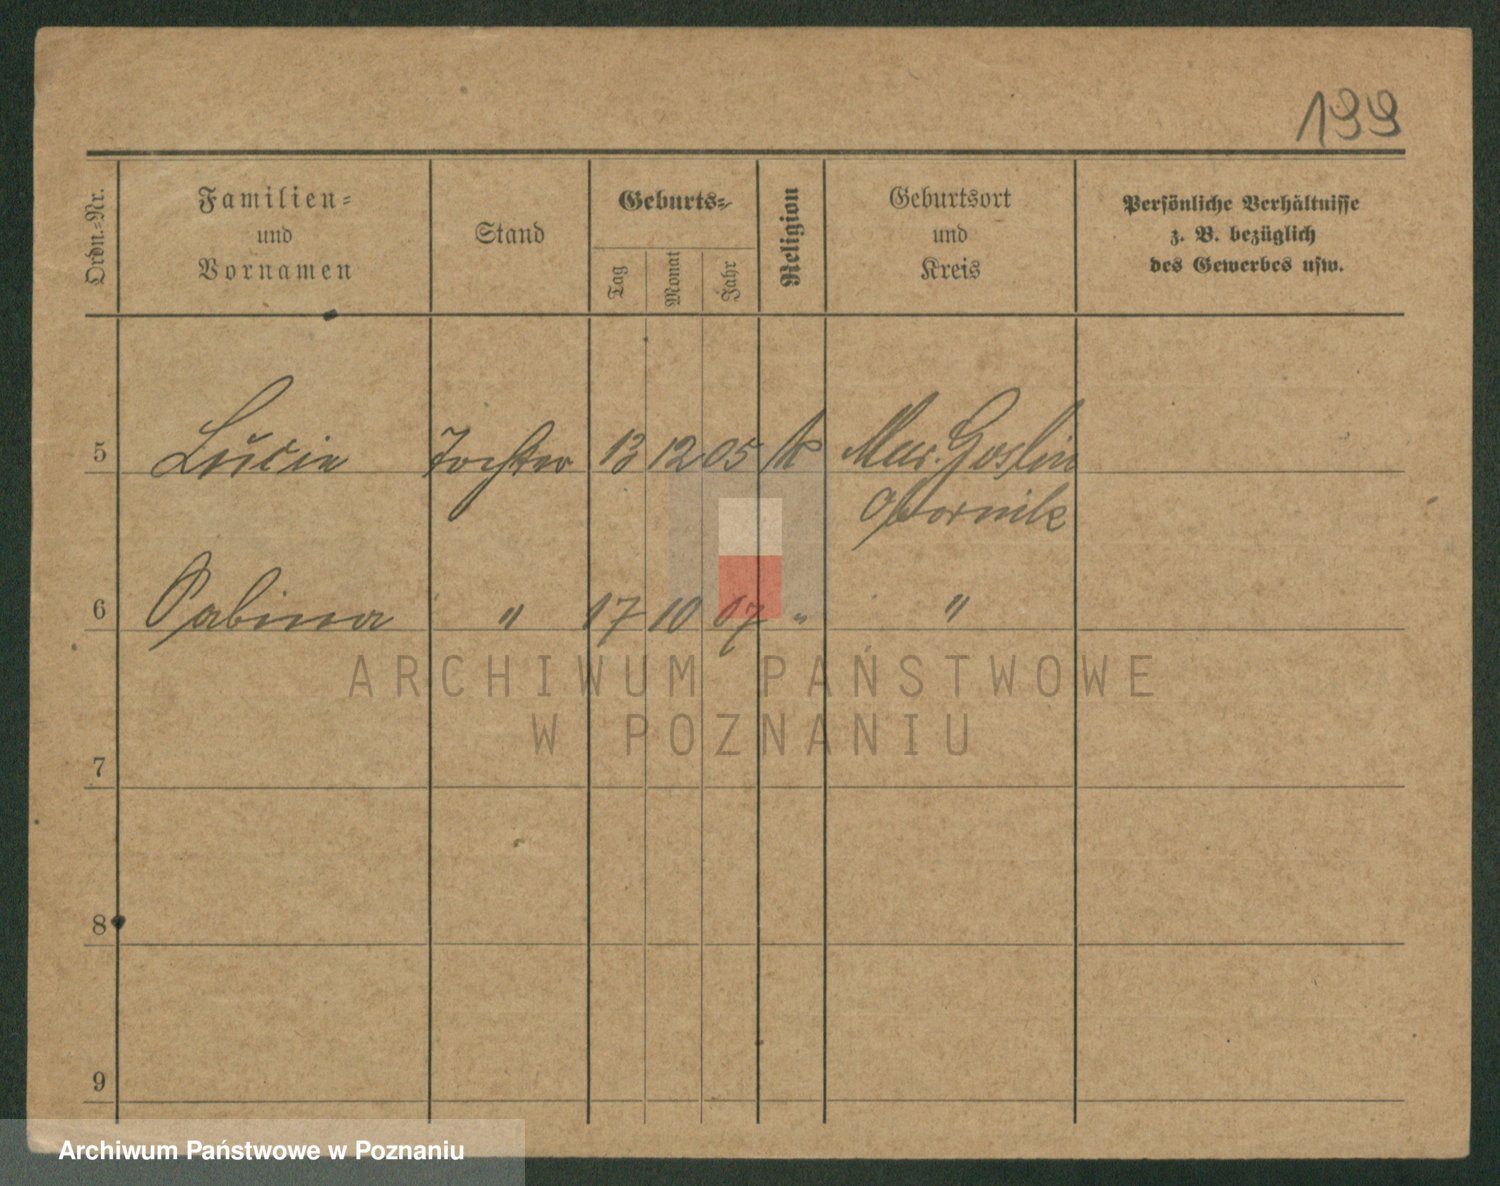 199
Ordn.-Nr.
Familien-
und
Vornamen
Stand
Geburts-
Tag
Monat
Jahr
Religion
Geburtsort
und
Kreis
Persönliche Verhältnisse
z. B. bezüglich
des Gewerbes usw.
5 Lucie Tochter 13 12 05 k Mur. Goslin
Obornik
6 Sabina " 17 10 07 " "
ARCHIWUM PAŃSTWOWE
W POZNANIU
7
8
9
Archiwum Państwowe w Poznaniu